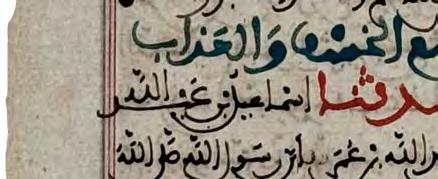 ـع الخسف والعذاب
ـدثنا اسماعيل بن عبد الله
ـد الله بن عمر ان رسول الله صلى الله